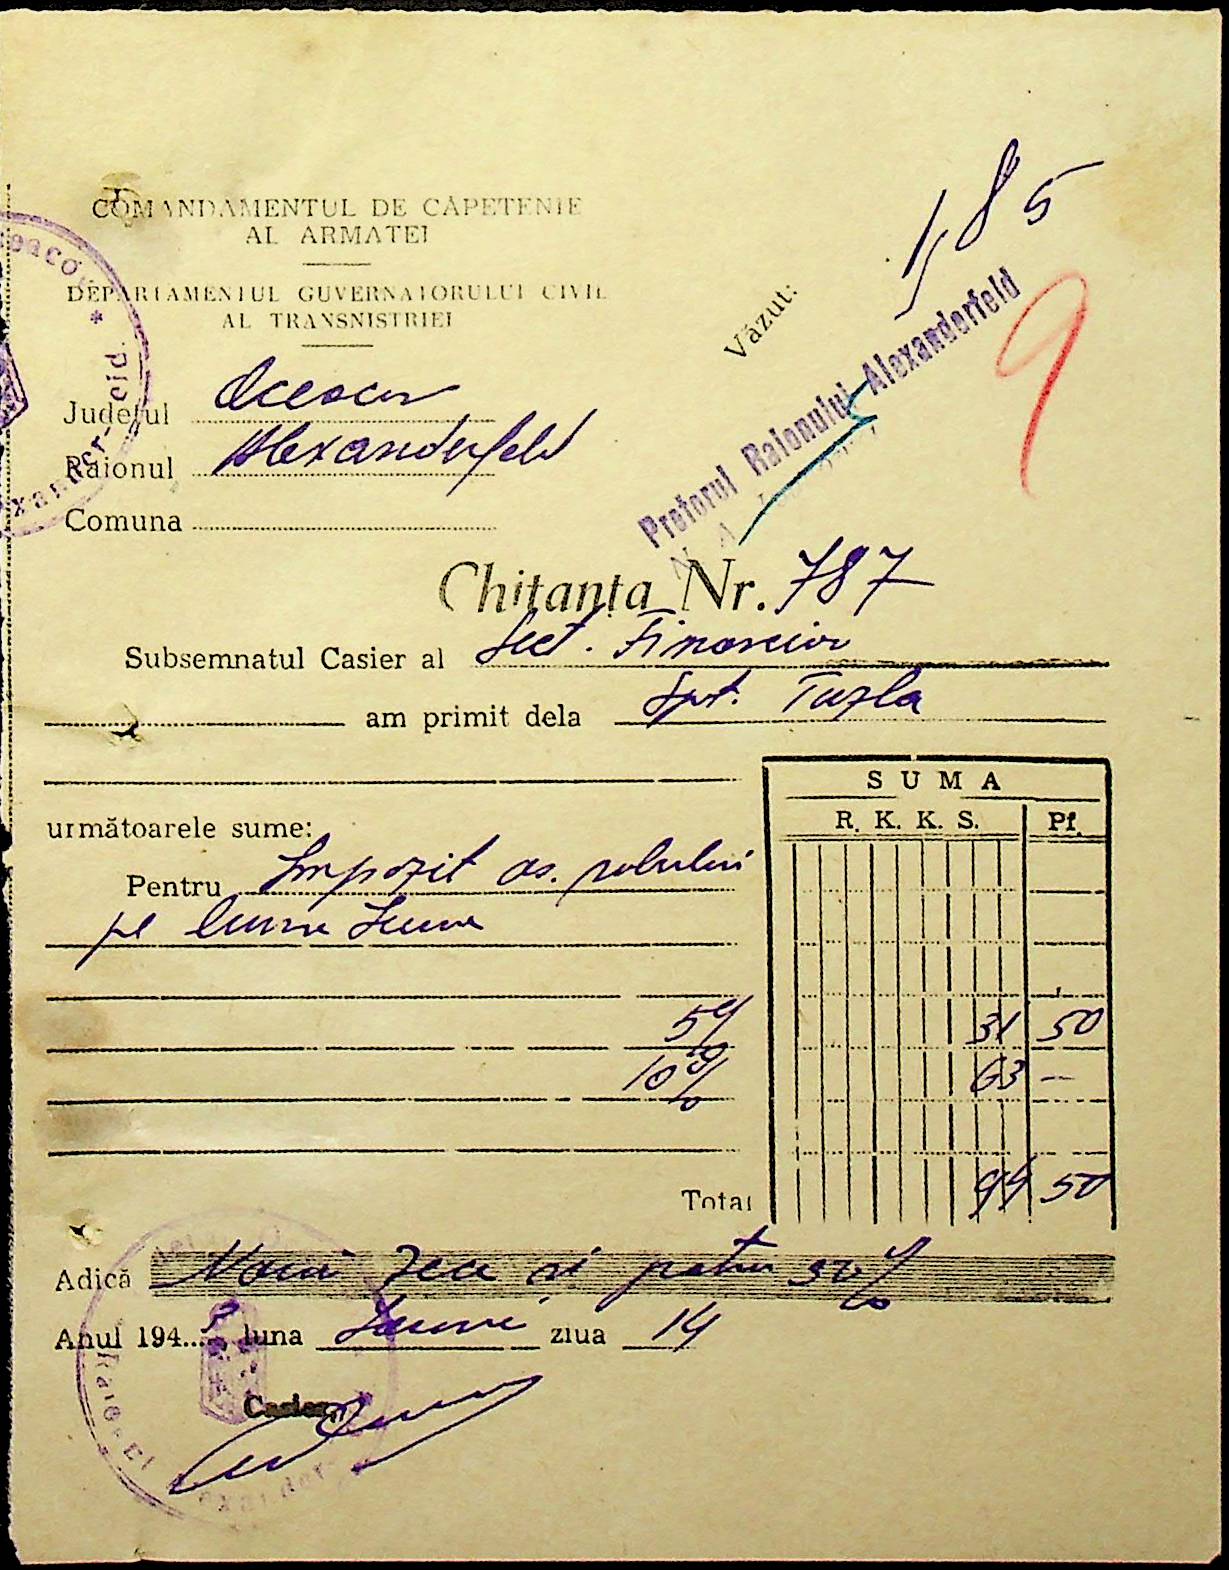 COMANDAMENTUL DE CĂPETENIE
AL ARMATEI
DEPARTAMENTUL GUVERNATORULUI CIVIL
AL TRANSNISTRIEI
185
9
Văzut:
Pretorul Raionului Alexanderfeld
Județul Oceacov
Raionul Alexanderfeld
Comuna
Chitanța Nr. 787
Subsemnatul Casier al Sect. Financiar
am primit dela Spt. Tuzla
SUMA
R. K. K. S. Pf.
următoarele sume:
Pentru Impozit as.
pe luna Iunie
5% 31 50
10% 63 —
Total 94 50
Adică Nouă zeci și patru 50%
Anul 194 luna Iunie ziua 14
Casier,